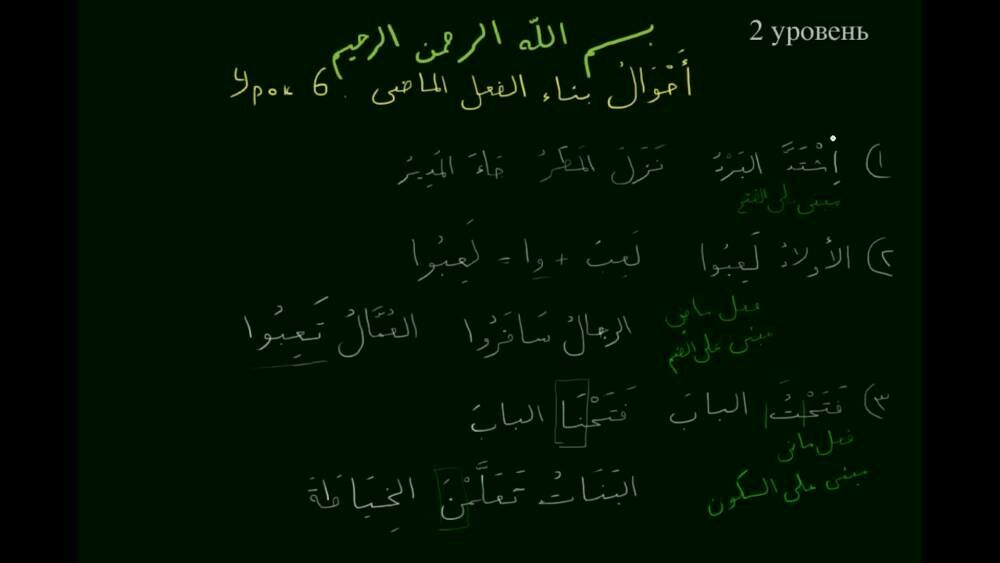 2 уровень
بسم الله الرحمن الرحيم
أَحْوَالُ بناء الفعل الماضى. Урок 6
١) اِشْتَدَّ البَرْدُ نَزَلَ المَطَرُ جَاءَ المُدِيرُ
مبنى على الفتح
٢) الأَولادُ لَعِبُوا لَعِبَ + وا = لَعِبُوا
فعل ماضى
مبنى على الضم
الرجالُ سَافَرُوا العُمَّالُ تَعِبُوا
٣) فَتَحْتُ البابَ فَتَحْنَا البابَ
فعل ماضى
مبنى على السكون
البَنَاتُ تَعَلَّمْنَ الخِيَاطَة